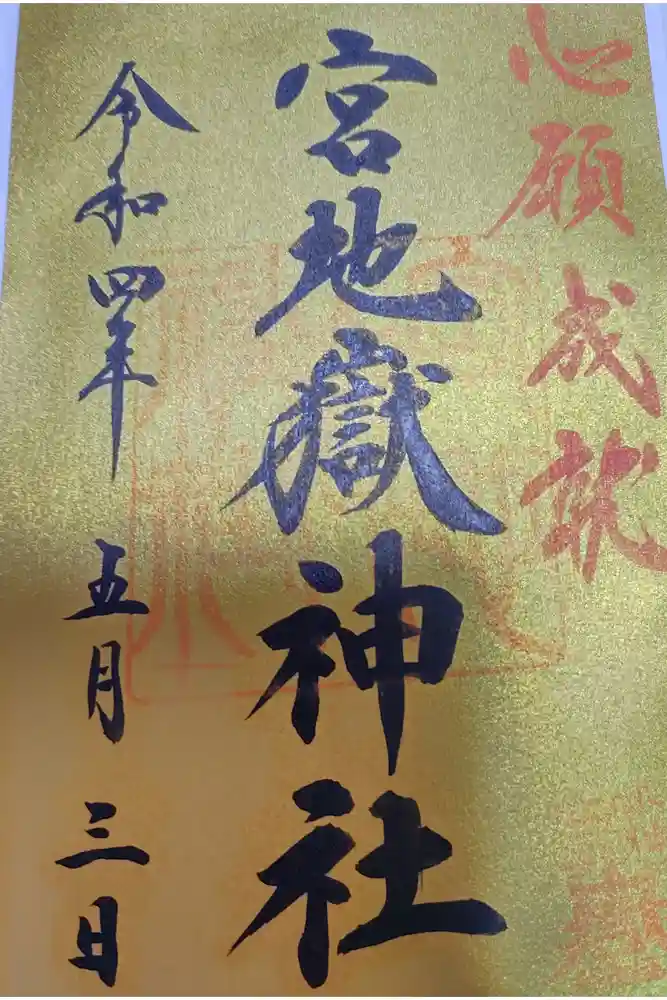 心願成就
宮地嶽神社
令和四年五月三日